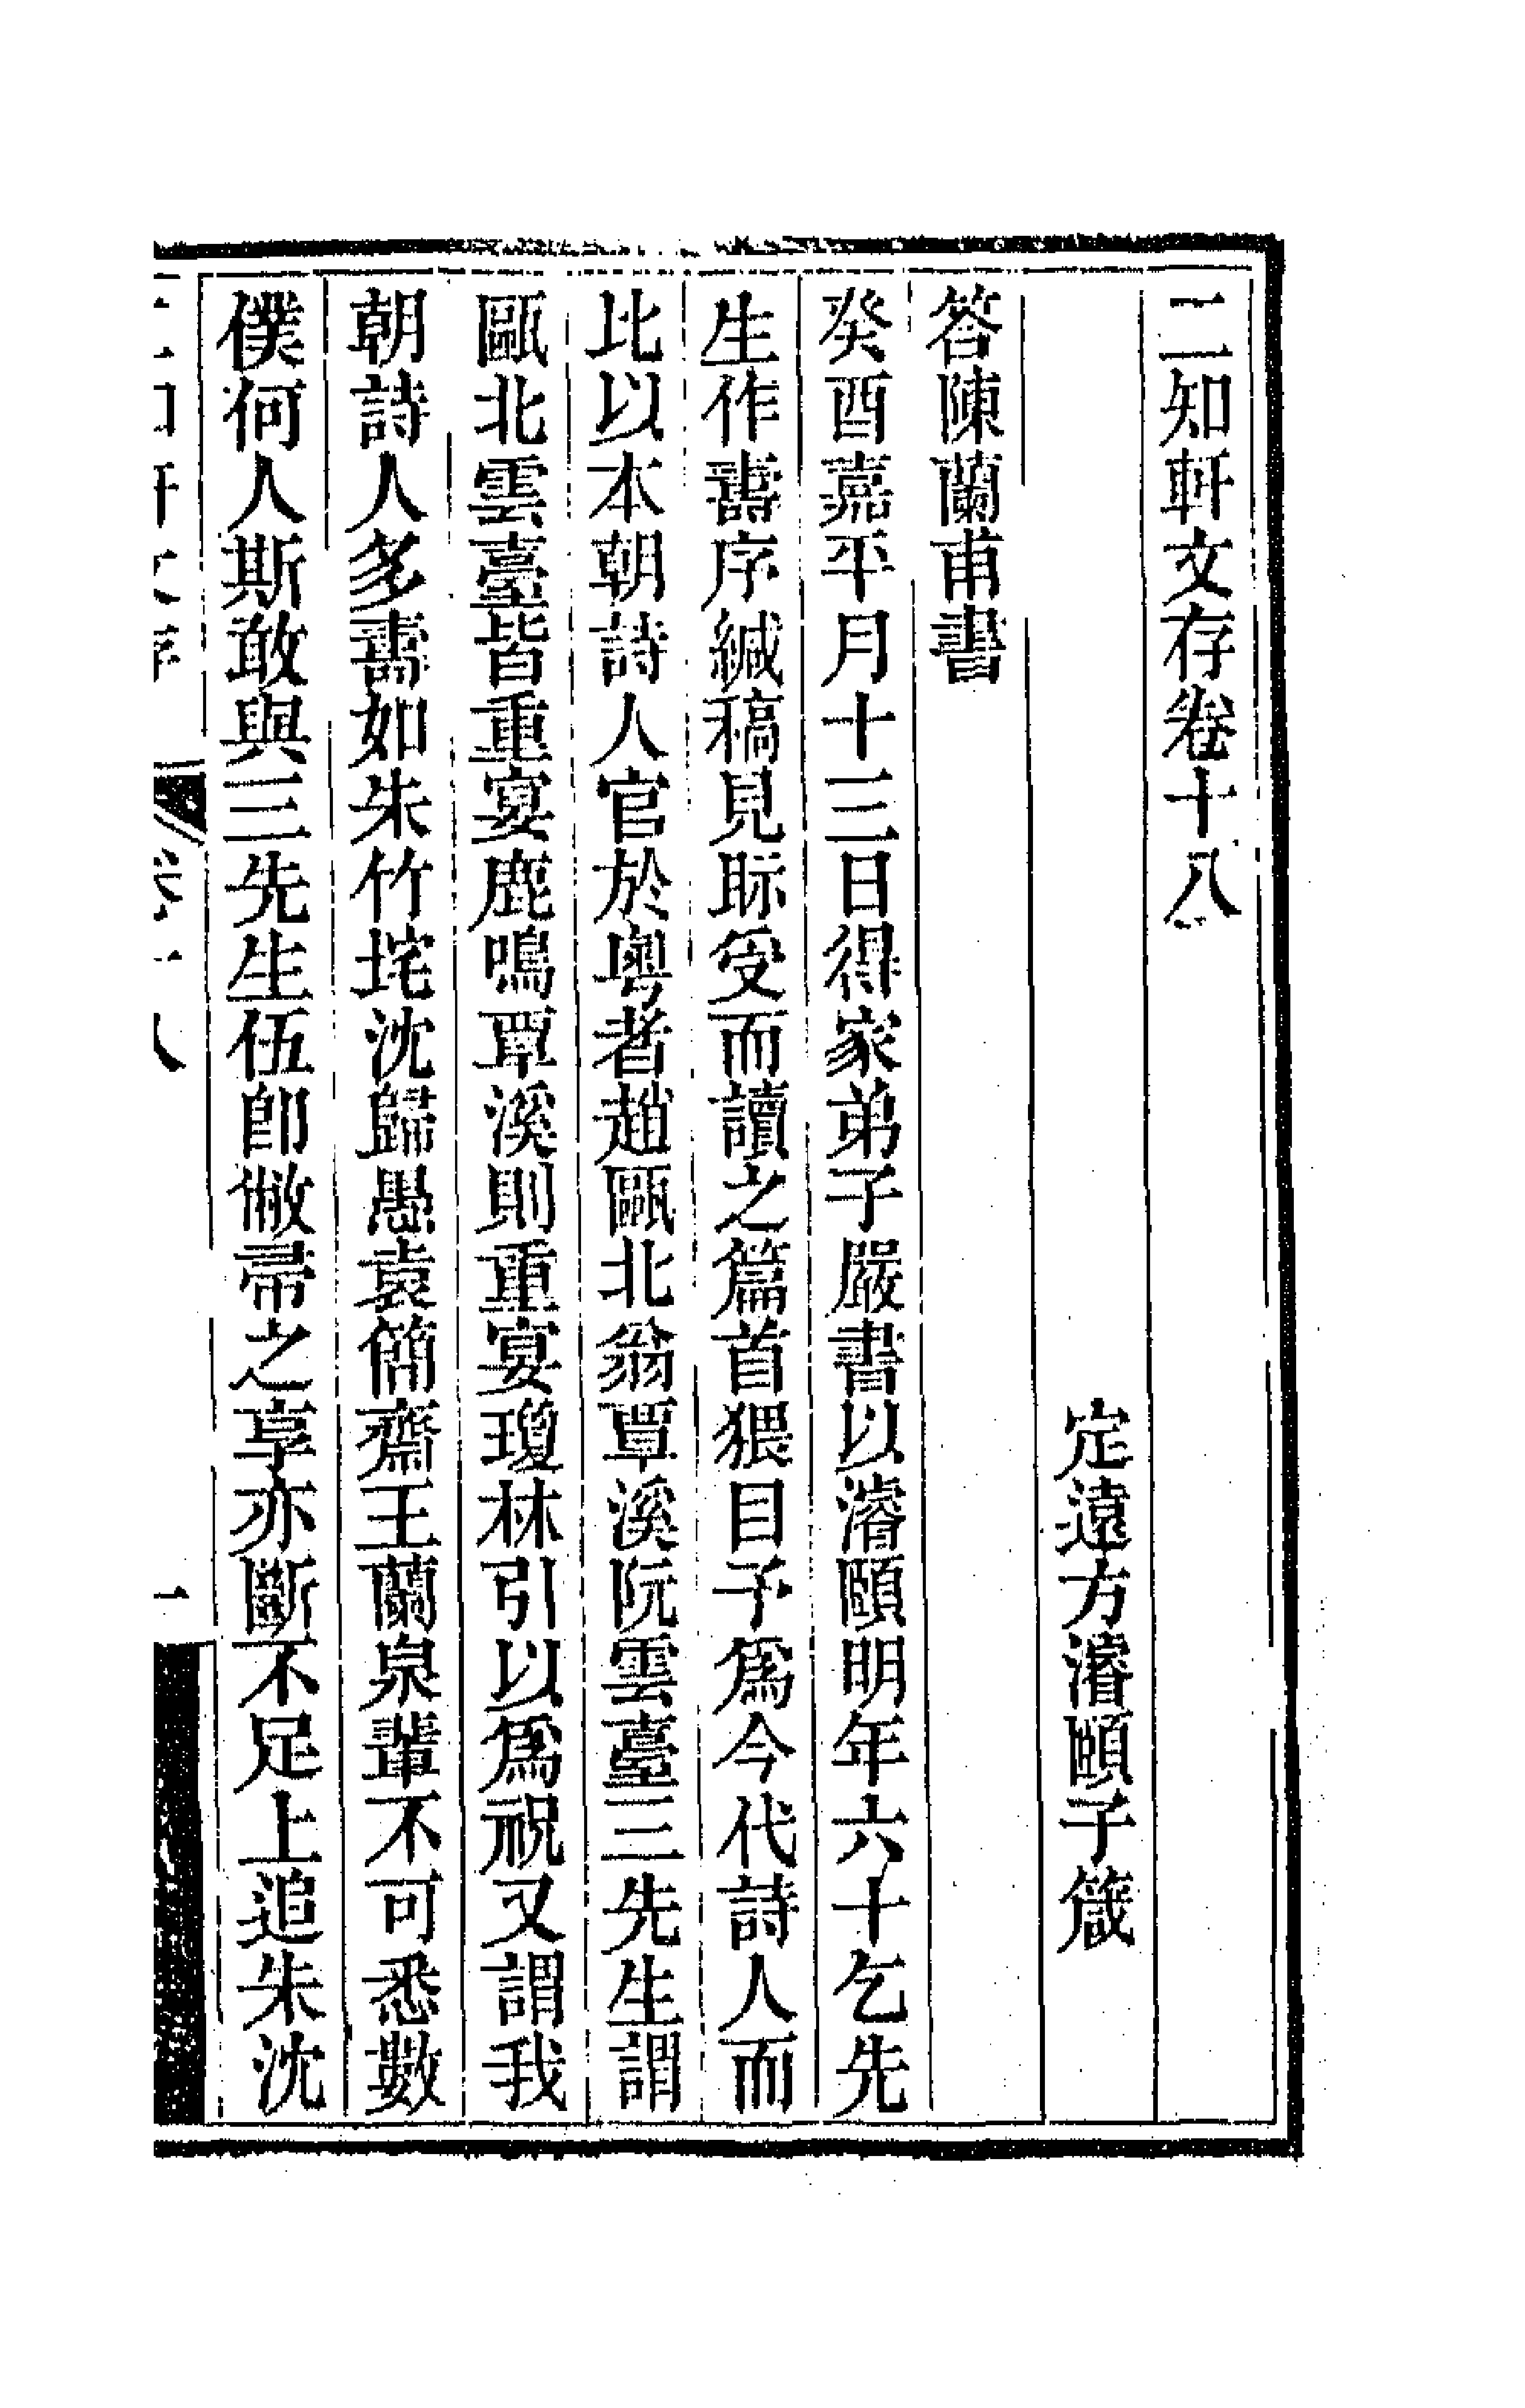 二知軒文存卷十八
定遠方濬頤子箴
答陳蘭甫書
癸酉嘉平月十三日得家弟子嚴書以濬頤明年六十乞先
生作壽序緘稿見眎受而讀之篇首猥目予爲今代詩人而
比以本朝詩人官於粤者趙甌北翁覃溪阮雲臺三先生謂
甌北雲臺皆重宴鹿鳴覃溪則重宴瓊林引以爲祝又謂我
朝詩人多壽如朱竹垞沈歸愚袁簡齋王蘭泉輩不可悉數
僕何人斯敢與三先生伍卽敝帚之享亦斷不足上追朱沈
二知軒文存 卷十八 一